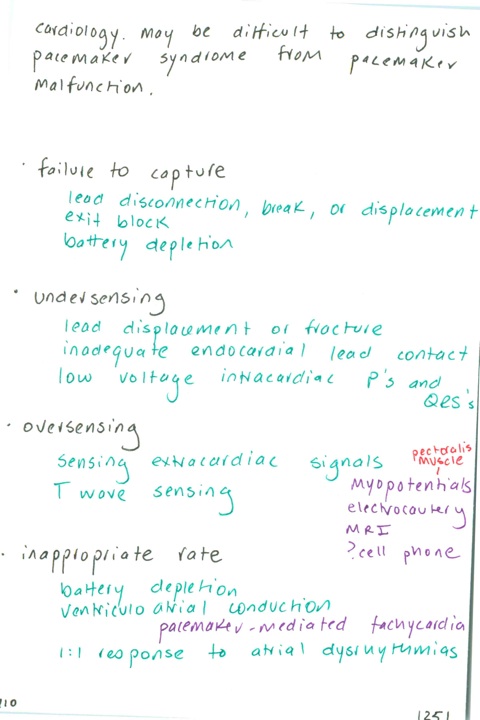 cardiology. may be difficult to distinguish
pacemaker syndrome from pacemaker
malfunction.
· failure to capture
lead disconnection, break, or displacement
exit block
battery depletion
· undersensing
lead displacement or fracture
inadequate endocardial lead contact
low voltage intracardiac P's and
QRS's
· oversensing
sensing extracardiac signals
pectoralis
muscle
T wave sensing
myopotentials
electrocautery
MRI
? cell phone
· inappropriate rate
battery depletion
ventriculo atrial conduction
pacemaker-mediated tachycardia
1:1 response to atrial dysrhythmias
10
1251